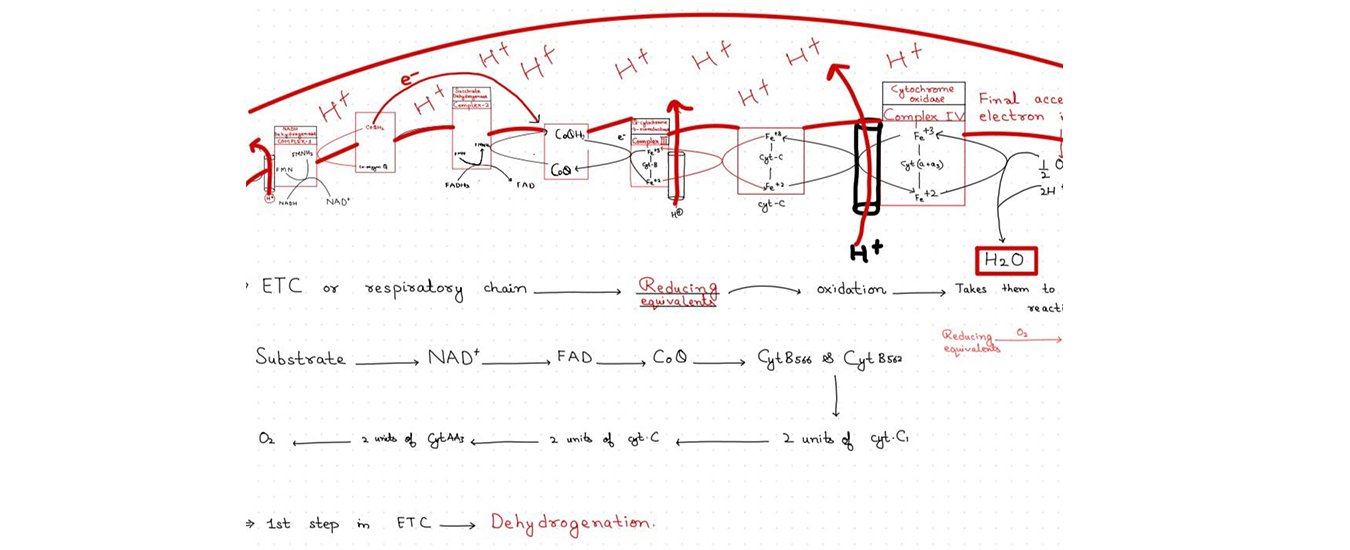 H+ H+ H+ H+ H+ H+ H+ H+
e-
H+
NADH
Dehydrogenase
COMPLEX-1
FMNH2
FMN
NADH
NAD+
H+
CoQH2
Co-enzyme Q
Succinate
Dehydrogenase
Complex-2
FADH2
FAD
CoQH2
CoQ
e-
Complex III
Fe+3
Cyt-B
Fe+2
H+
Fe+3
Cyt-C
Fe+2
cyt-C
H+
Cytochrome
oxidase
Complex IV
Fe+3
Cyt(a+a3)
Fe+2
Final acce
electron i
1/2 O
2H+
H2O
ETC or respiratory chain → Reducing equivalents → oxidation → Takes them to
reacti
Reducing equivalents O2 →
Substrate → NAD+ → FAD → CoQ → CytB566 & CytB562
O2 ← 2 units of CytAA3 ← 2 units of cyt.C ← 2 units of cyt.C1
⇒ 1st step in ETC → Dehydrogenation.